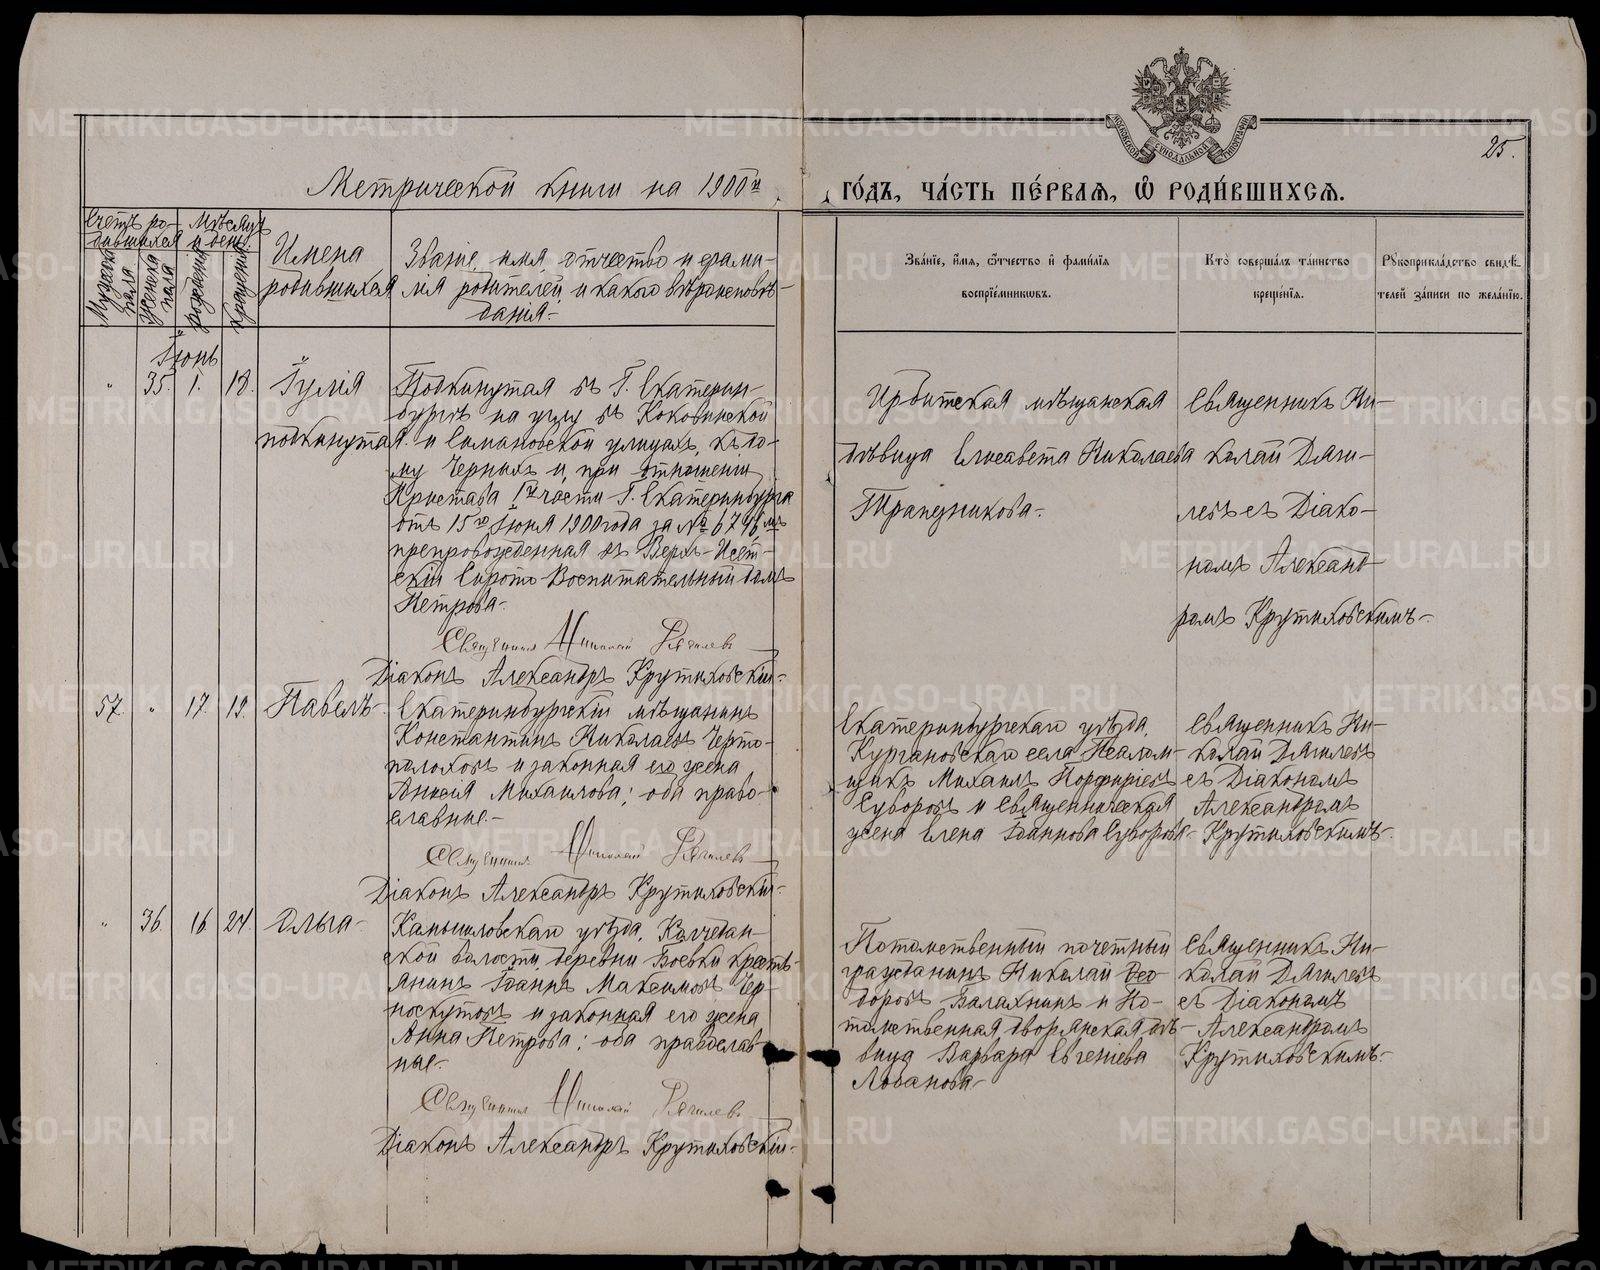 25.
Метрической книги на 1900й
го́дъ, ча́сть пе́рвая, ѡ҆ роди́вшихся.
Счетъ ро-
дившихся
Мѣсяцъ
и день.
Мужеска
пола
Женска
пола
рожденія
крещенія
Имена
родившихся
Званіе, имя, отчество и фами-
лія родителей, и какого вѣроисповѣ-
данія.-
Зва́нїе, и҆́мя, ѻ҆́тчество и҆ фами́лїа
воспрїе́мниковъ.
Кто̀ соверша́лъ та́инство
креще́нїя.
Рꙋкоприкла́дство свидѣ́-
телей за́писи по жела́нїю.
Іюнь
" 35. 1. 18. Іулія
подкинутая.
Подкинутая въ Г. Екатерин-
бургѣ на углу въ Коковинской
и Симановской улицахъ, къ до-
му Черныхъ и, при отношеніи
Пристава 1й части Г. Екатеринбурга
отъ 15го Іюня 1900 года за №
препровожденная въ Верхъ-Исет-
скій Сирото-Воспитательный домъ
Петрова.-
Священникъ Николай Дягилевъ
Діаконъ Александръ Крутиховскій.-
Ирбитская мѣщанская
дѣвица Елисавета Николаева
Трапезникова.-
Священникъ Ни-
колай Дяги-
левъ съ Діако-
номъ Александ-
ромъ Крутиховскимъ.-
57. " 17. 19. Павелъ.-
Екатеринбургскій мѣщанинъ
Константинъ Николаевъ Черто-
полоховъ и законная его жена
Анисія Михаилова; оба право-
славные.-
Священникъ Николай Дягилевъ
Діаконъ Александръ Крутиховскій.-
Екатеринбургскаго уѣзда,
Кургановскаго села Псалом-
щикъ Михаилъ Порфирьевъ
Суворовъ и священническая
жена Елена Іоаннова Суворова.-
Священникъ Ни-
колай Дягилевъ
съ Діакономъ
Александромъ
Крутиховскимъ.-
" 36. 16. 24. Ольга.-
Камышловскаго уѣзда, Колчедан-
ской волости, деревни Боевки кресть-
янинъ Іоаннъ Максимовъ Чер-
носкутовъ и законная его жена
Анна Петрова; оба православ-
ные.-
Священникъ Николай Дягилевъ
Діаконъ Александръ Крутиховскій.-
Потомственный почетный
гражданинъ Николай Ѳео-
доровъ Балахнинъ и По-
томственная дворянская дѣ-
вица Варвара Евгеніева
Лобанова.-
Священникъ Ни-
колай Дягилевъ
съ Діакономъ
Александромъ
Крутиховскимъ.-
METRIKI.GASO-URAL.RU